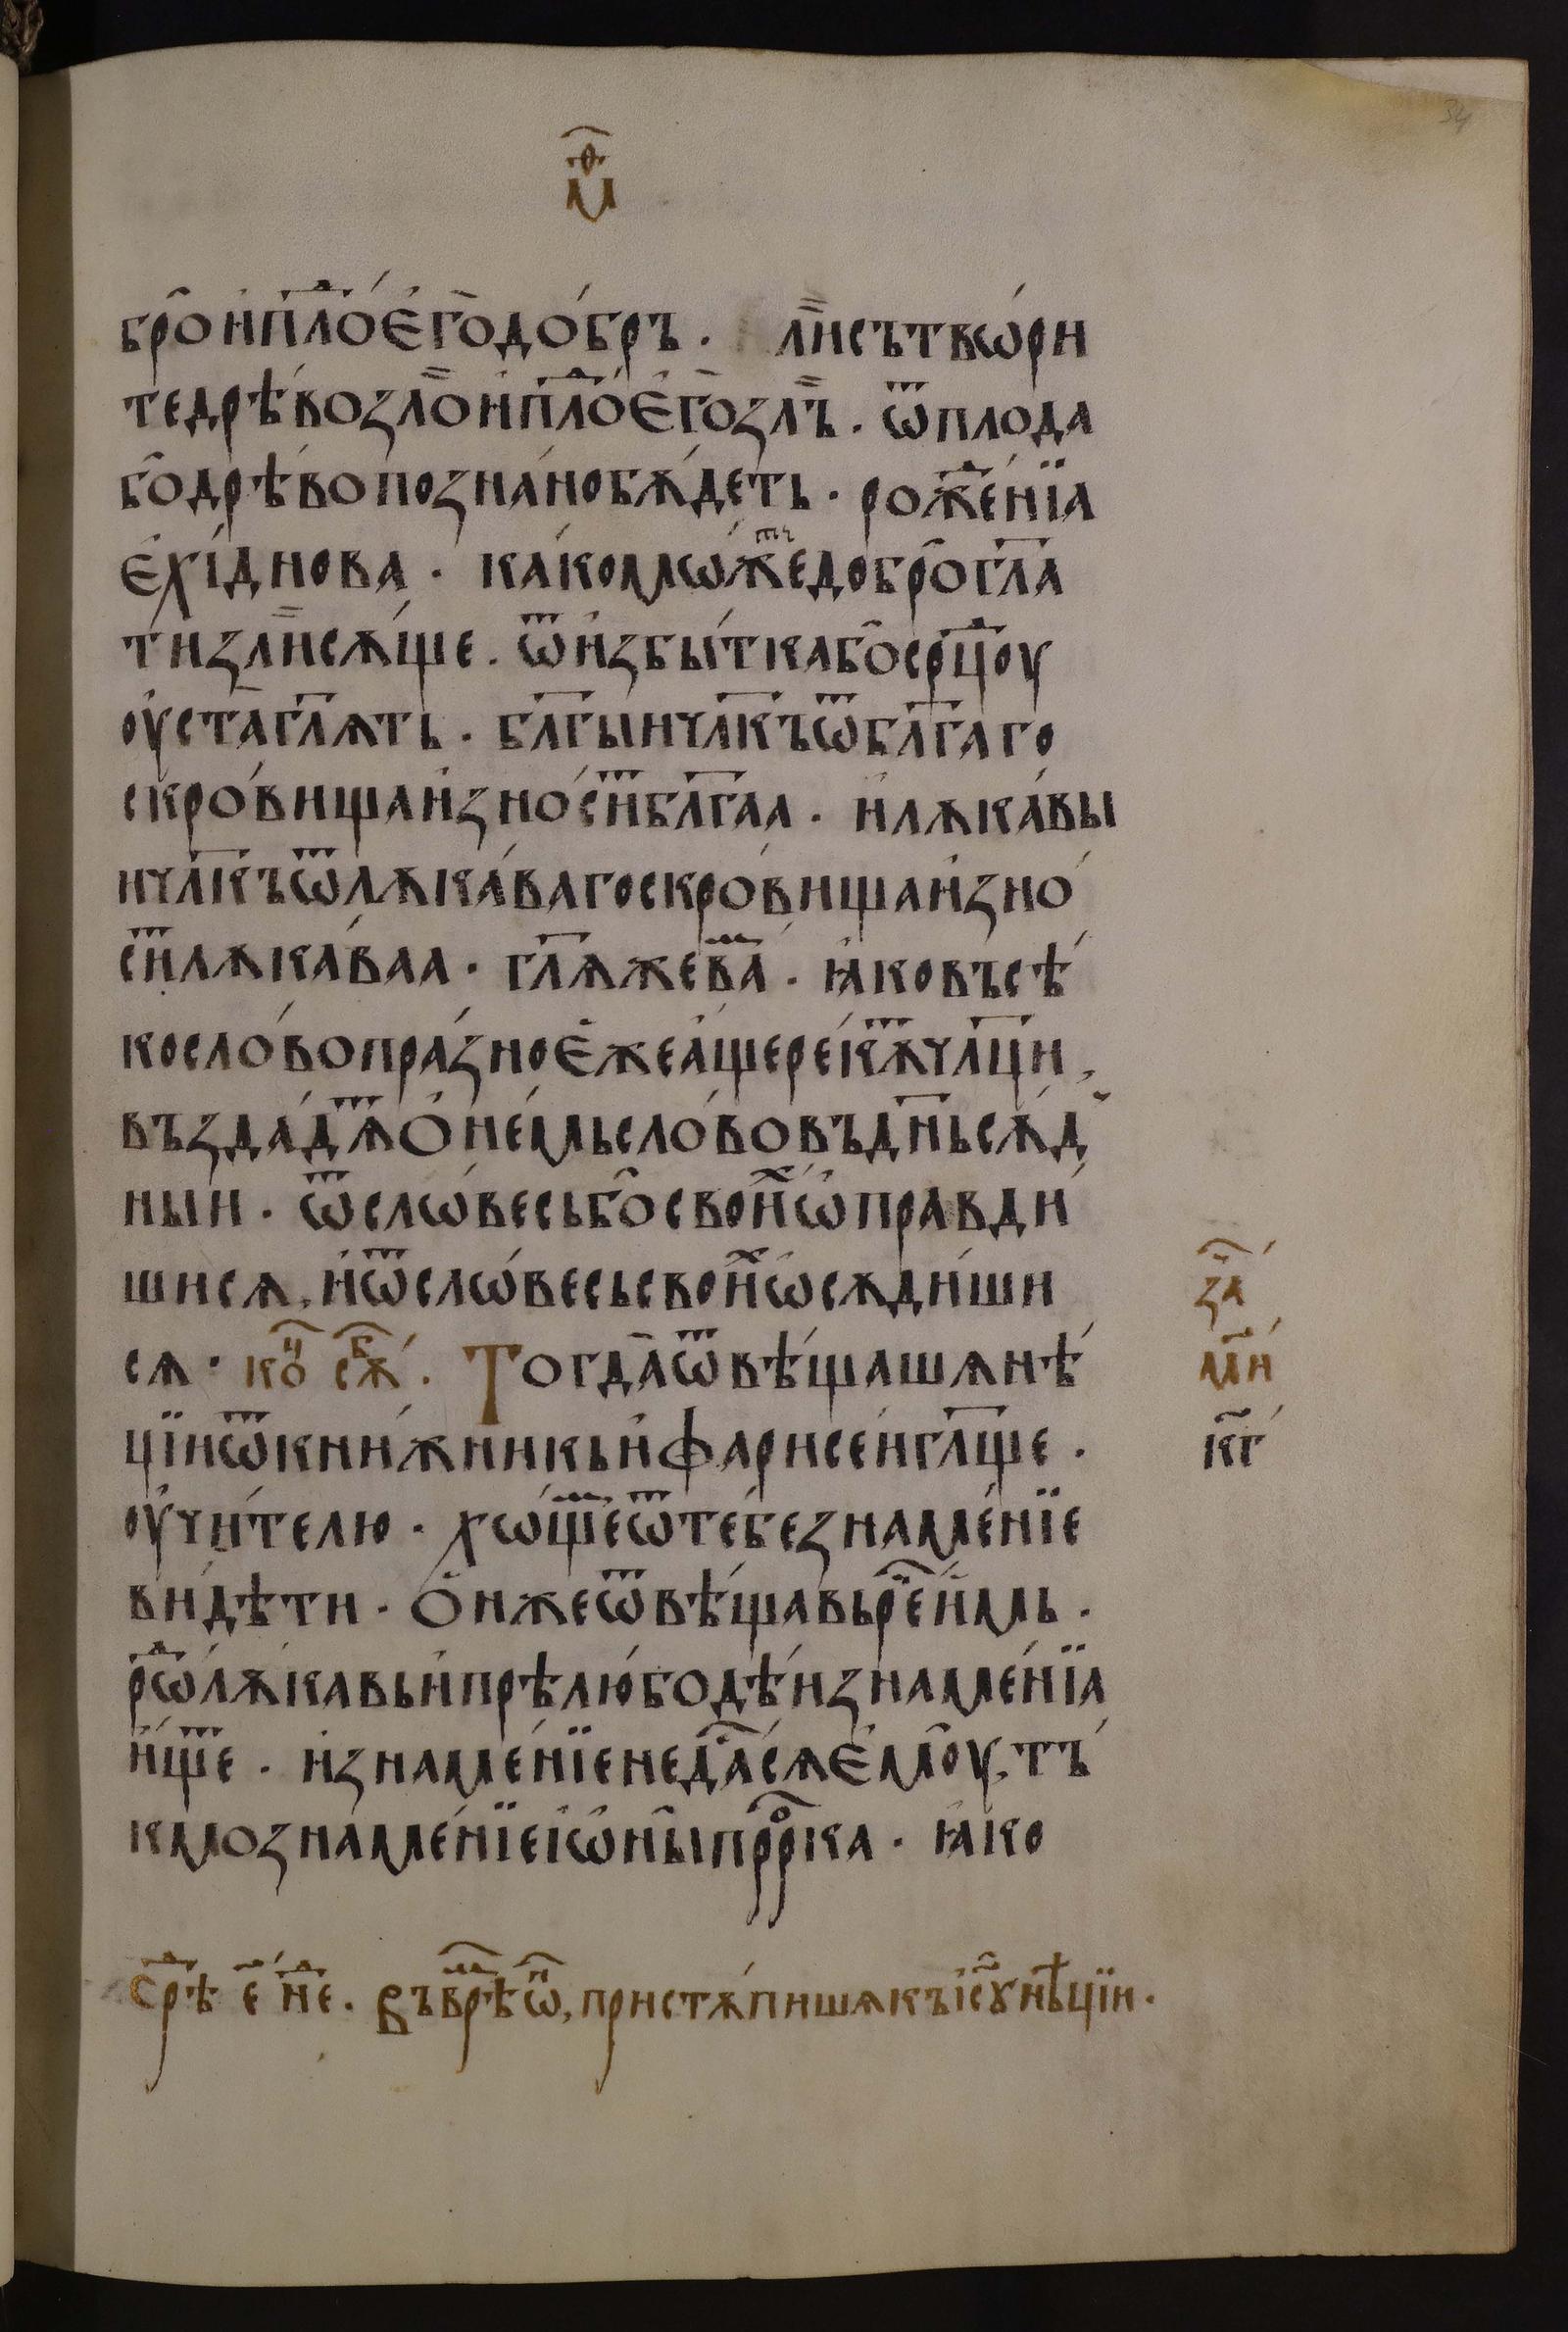 м҃ѳ
бро̑ и҆ пло́ⷣ є҆го̀ до́бръ. лѝ сътвѡ́ри
те дрѣ́во зло̀ и҆ пло́ⷣ є҆го̀ злъ̀. ѿ плода
бо̑ дрѣ́во позна́но бѫ́деть. рожⷣе́нїа
є҆хі́днова. ка́ко мѡ́жеⷮ добро̑ гл҃а
ти зли̏ сѫ́ще. ѿ и҆збы́тка бо̑ срⷣцоу
оу҆ста̀ гл҃ѧть. бл҃гыи чл҃къ ѿ бл҃гаго
скро́вища и҆зно́сиⷮ бл҃гаа. и҆ лѫка́вы
и чл҃къ ѿ лѫка́ваго скро́вища и҆зно́
сиⷮ лѫка́ваа. гл҃ѫ же ваⷨ. ꙗ҆ко въсѣ́
ко сло́во пра́зно є҆же а҆́ще рекѫ́ⷮ чл҃ци,
въздадѧ́ⷮ ѻ҆ не́мь сло́во въ дн҃ь сѫ́д
ныи. ѿ слѡ́весь бо̑ свои́ⷯ ѡ҆правди́
ши сѧ, и҆ ѿ слѡ́весь свои́ⷯ ѡ҆сѫди́ши
сѧ. коⷰ҇ сѫⷠ҇. Тогда̀ ѿвѣ́щашѧ нѣ́
цїи ѿ кни́жникь и҆ фарисе́и гл҃ще.
оу҆чи́телю. хѡ́щеⷨ ѿ тебе знаме́нїе
ви́дѣти. ѻ҆н же ѿвѣ́щавь рⷱ҇е и҆мь.
рѡⷣ лѫ́кавь и҆ прѣлюбодѣ́и знаме́нїа
и҆́щеⷮ. и҆ знаме́нїе не дⷭ҇а сѧ є҆моу̑, тъ́
кмо знаме́нїе і҆ѡ́ны̑ прⷪ҇рка. ꙗ҆ко
за҃
мⷴ҇и
к҃г
срⷣѣ є҃ нⷣе. въ врⷨѣ ѡⷩ҇, пристѫ́пишѧ къ і҆су̑ нѣ́цїи.
34